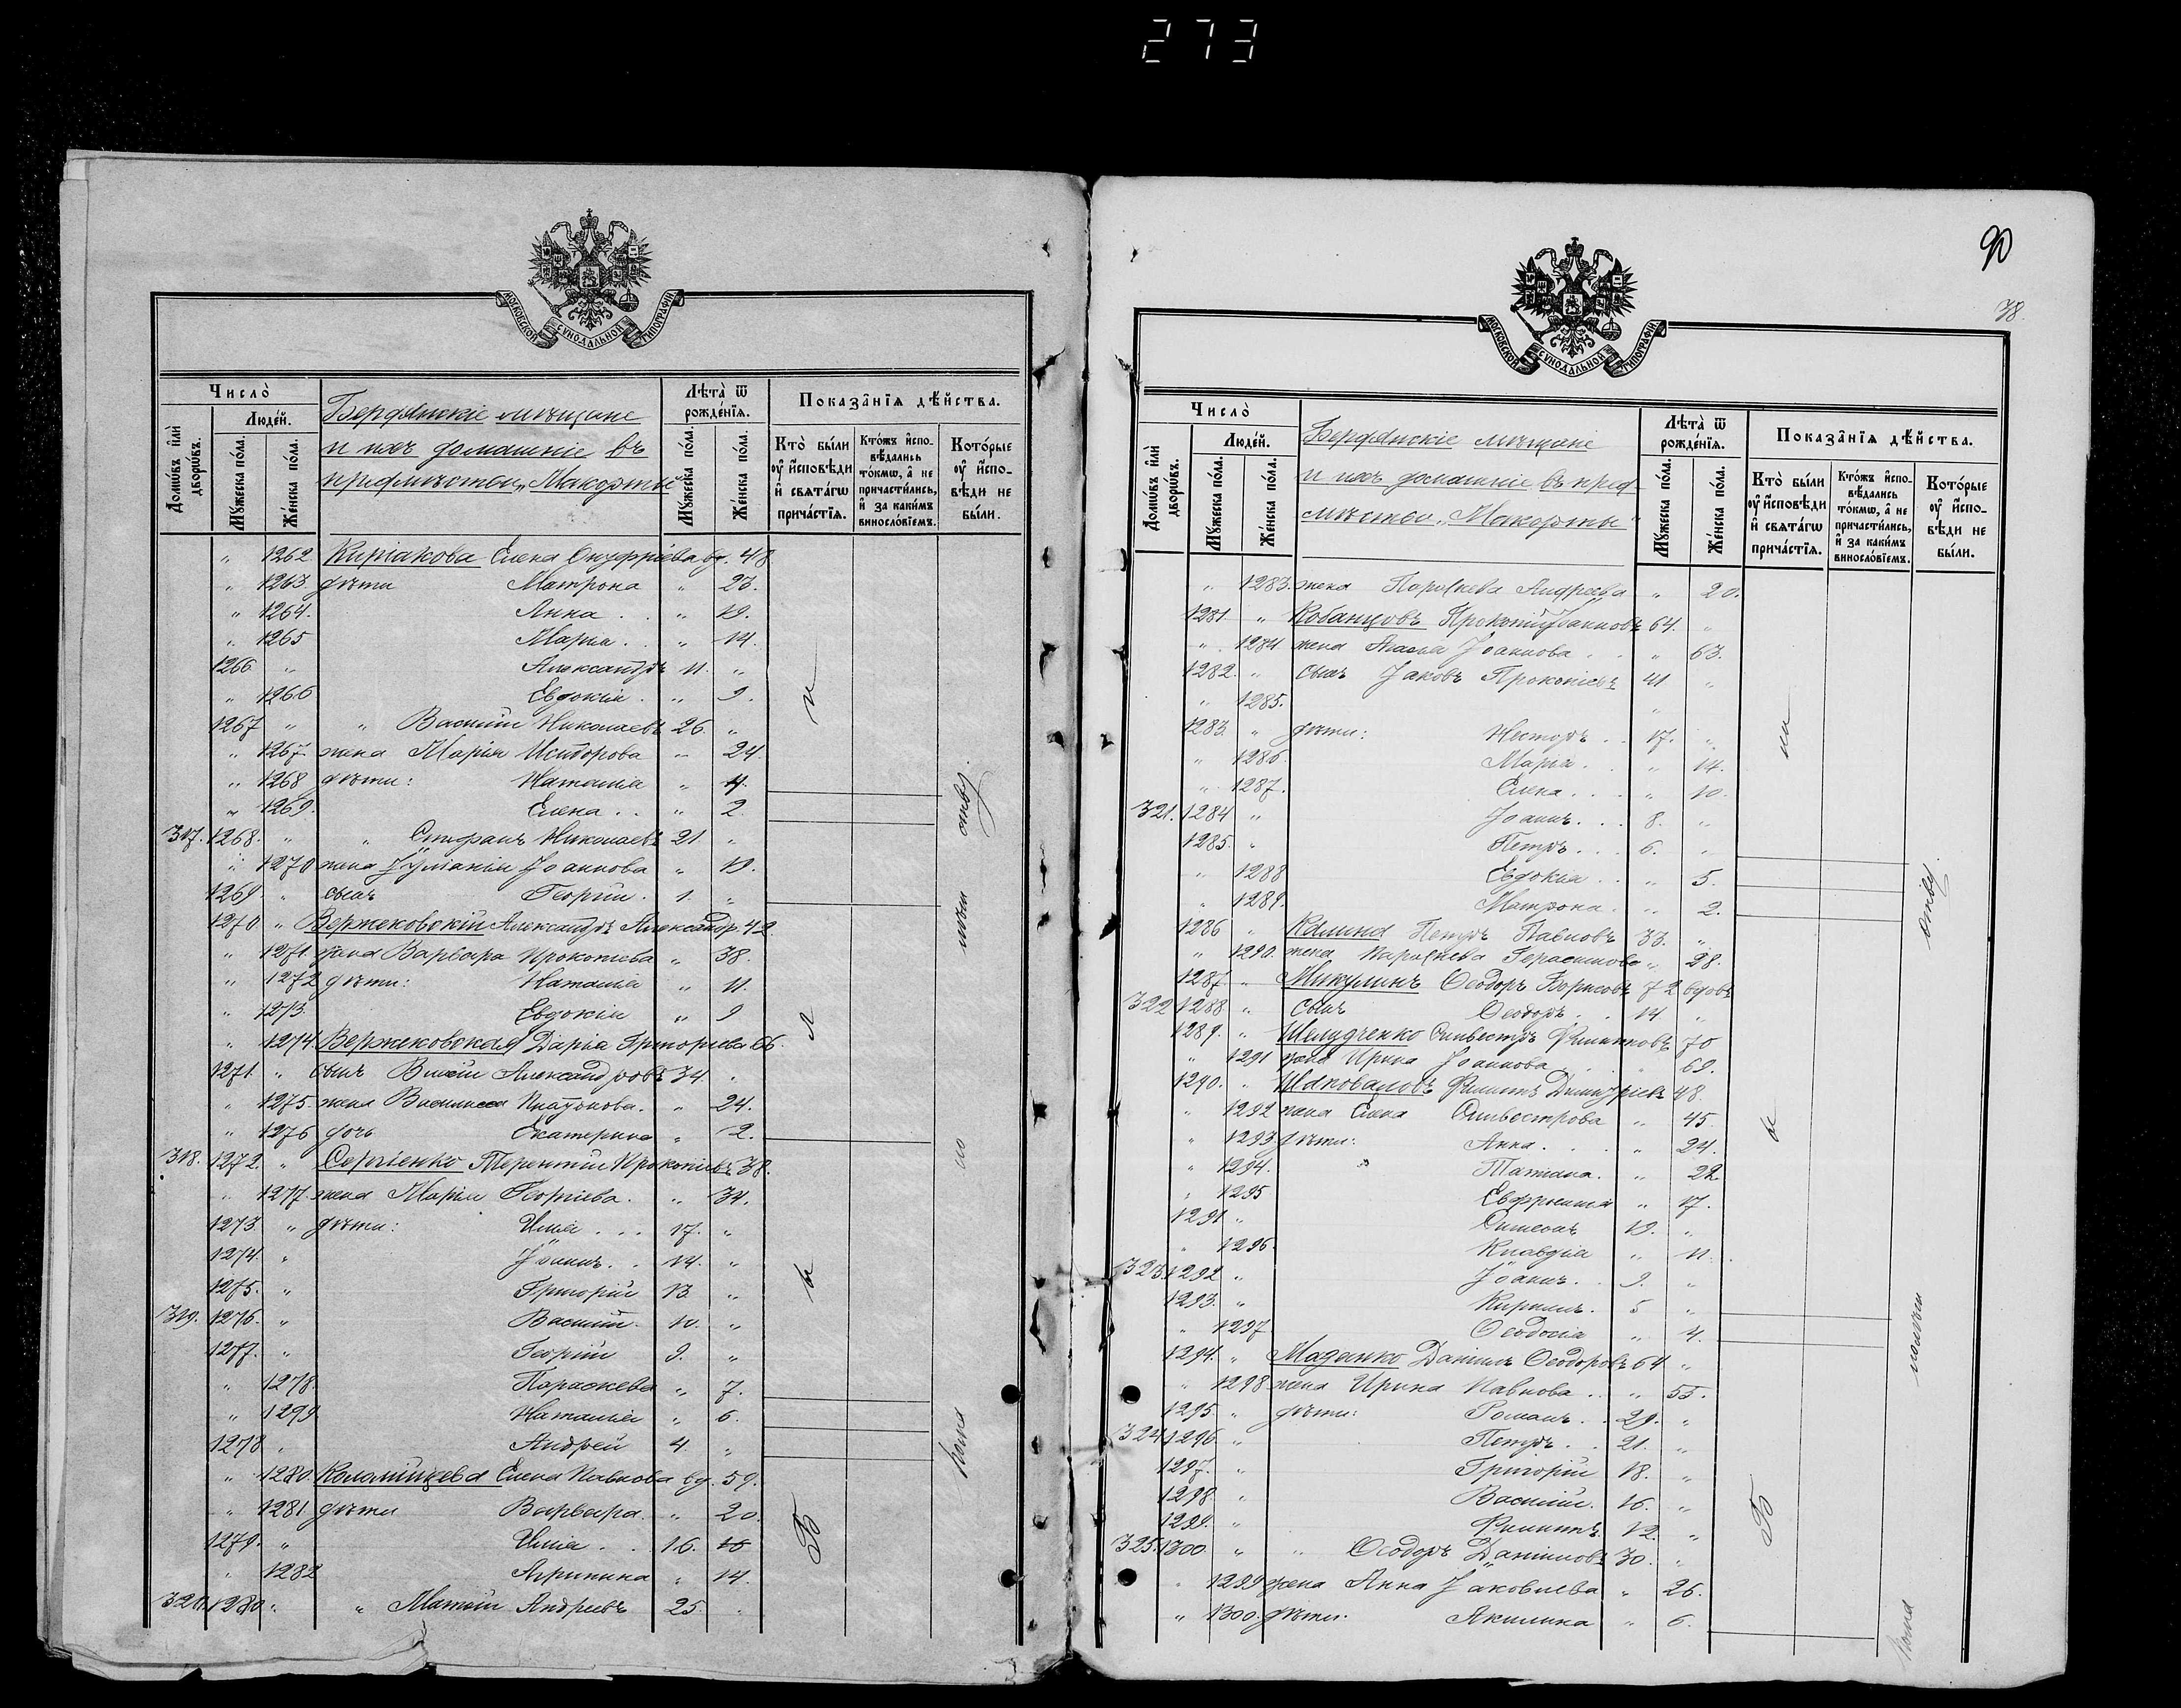 273
МОСКОВСКОЙ СУНОДАЛЬНОЙ ТИПОГРАФІИ
Число̀
Домѡ́въ и҆лѝ дворѡ́въ.
Люде́й.
Мꙋ́жеска по́ла.
Же́нска по́ла.
Бердянскіе мѣщане
и ихъ домашніе въ
предмѣстьи „Макорты"
Лѣта̀ ѿ рожде́нїѧ.
Мꙋ́жеска по́ла.
Же́нска по́ла.
Показа̑нїѧ дѣ́йства.
Кто̀ бы́ли оу҆ и҆́сповѣди и҆ свѧта́гѡ прича́стїѧ.
Кто́жъ и҆спо-вѣ́дались то́кмѡ, а҆ не причасти́лись, и҆ за каки́мъ винослові́емъ.
Кото́рые оу҆ и҆́спо-вѣди не бы́ли.
„ 1262. Киріакова Елена Онуфріева вд. 48
„ 1263. дѣти Матрона „ 23.
„ 1264. Анна . . „ 19.
„ 1265 Марія . . „ 14.
1266 „ Александръ 11. „
„ 1266 Евдокія . „ 9.
1267 „ „ Василій Николаевъ 26. „
„ 1267 жена Марія Исидорова „ 24.
„ 1268 дѣти: Наталія „ 4.
„ 1269. Елена . . „ 2.
317. 1268. „ „ Стефанъ Николаевъ 21 „
„ 1270 жена Іуліанія Іоаннова „ 19.
1269. „ сынъ Георгій . 1. „
1270 „ Вержековскій Александръ Александр. 42
„ 1271. жена Варвара Прокопіева „ 38.
„ 1272 дѣти: Наталія „ 11.
„ 1273. Евдокія „ 9
„ 1274 Вержековская Дарія Григоріева 66.
1271. „ сынъ Александровъ 34. „
„ 1275. жена Василисса Платонова. „ 24.
„ 1276 дочь Екатерина „ 2.
318. 1272. „ Сергіенко Терентій Прокопіевъ 38.
„ 1277. жена Марія Георгіева. „ 34.
1273. „ дѣти: Илія . . . 17. „
1274. „ Іоаннъ. . 14. „
1275. „ Григорій 13 „
319. 1276. „ Василій. 10. „
1277. „ Георгій 9. „
„ 1278. Параскева „ 7.
„ 1299 Наталія „ 6.
1278 „ Андрей 4 „
„ 1280. Коломійцева Елена Павлова вд. 59.
„ 1281 дѣти Варвара. „ 20.
1279. „ Илія . . 16. 16
„ 1282 Агрипина „ 14.
320. 1280. „ „ Матѳій Андреевъ 25. „
Б ы л и
90
38
МОСКОВСКОЙ СУНОДАЛЬНОЙ ТИПОГРАФІИ
Число̀
Домѡ́въ и҆лѝ дворѡ́въ.
Люде́й.
Мꙋ́жеска по́ла.
Же́нска по́ла.
Бердянскіе мѣщане
и ихъ домашніе въ пред-
мѣстьи „Макорты"
Лѣта̀ ѿ рожде́нїѧ.
Мꙋ́жеска по́ла.
Же́нска по́ла.
Показа̑нїѧ дѣ́йства.
Кто̀ бы́ли оу҆ и҆́сповѣди и҆ свѧта́гѡ прича́стїѧ.
Кто́жъ и҆спо-вѣ́дались то́кмѡ, а҆ не причасти́лись, и҆ за каки́мъ винослові́емъ.
Кото́рые оу҆ и҆́спо-вѣди не бы́ли.
„ 1283. жена Параскева Андреева „ 20.
1281 „ Кобанцовъ Прокопій Іоанновъ 64. „
„ 1284 жена Іоаннова . . „ 63.
1282. „ сынъ Іаковъ Прокопіевъ 41 „
„ 1285. „
1283. „ дѣти: Несторъ . . 17. „
„ 1286. Марія . . „ 14.
„ 1287. Елена . . . „ 10.
321. 1284 „ Іоаннъ . . . 8. „
1285. „ Петръ . . . 6. „
„ 1288 Евдокія . . „ 5.
„ 1289. Матрона . „ 2.
1286 „ Калина Петръ Павловъ 33. „
„ 1290. жена Параскева Герасимова „ 28.
1287 „ Микулинъ Ѳеодоръ Борисовъ 72 вдовъ
322 1288. „ сынъ Ѳеодоръ . . 14 „
1289. „ Шелудченко Силвестръ Филипповъ 70
„ 1291 жена Ирина Іоаннова . . „ 69.
1290. „ Шаповаловъ Филиппъ Димитріевъ 48.
„ 1292 жена Елена Силвестрова „ 45.
„ 1293 дѣти: Анна . . „ 24.
„ 1294. Татіана. „ 22.
„ 1295 Евфросинія „ 17.
1291 „ Симеонъ 19. „
„ 1296. Клавдія „ 11.
323. 1292 „ Іоаннъ. . 9. „
1293. „ Кириллъ. 5 „
„ 1297 Ѳеодосія „ 4.
1294. „ Маденко Даніилъ Ѳеодоровъ 64 „
„ 1298 жена Ирина Павлова . . „ 55.
1295. „ дѣти: Романъ . . 29. „
324 1296 „ Петръ . . 21. „
1297. „ Григорій 18. „
1298. „ Василій. 16. „
1299. „ Филиппъ. 12. „
325. 1300. „ „ Ѳеодоръ Даніиловъ 30. „
„ 1299 жена Анна Іаковлева „ 26.
„ 1300. дѣти: Акилина „ 6.
Б ы ли